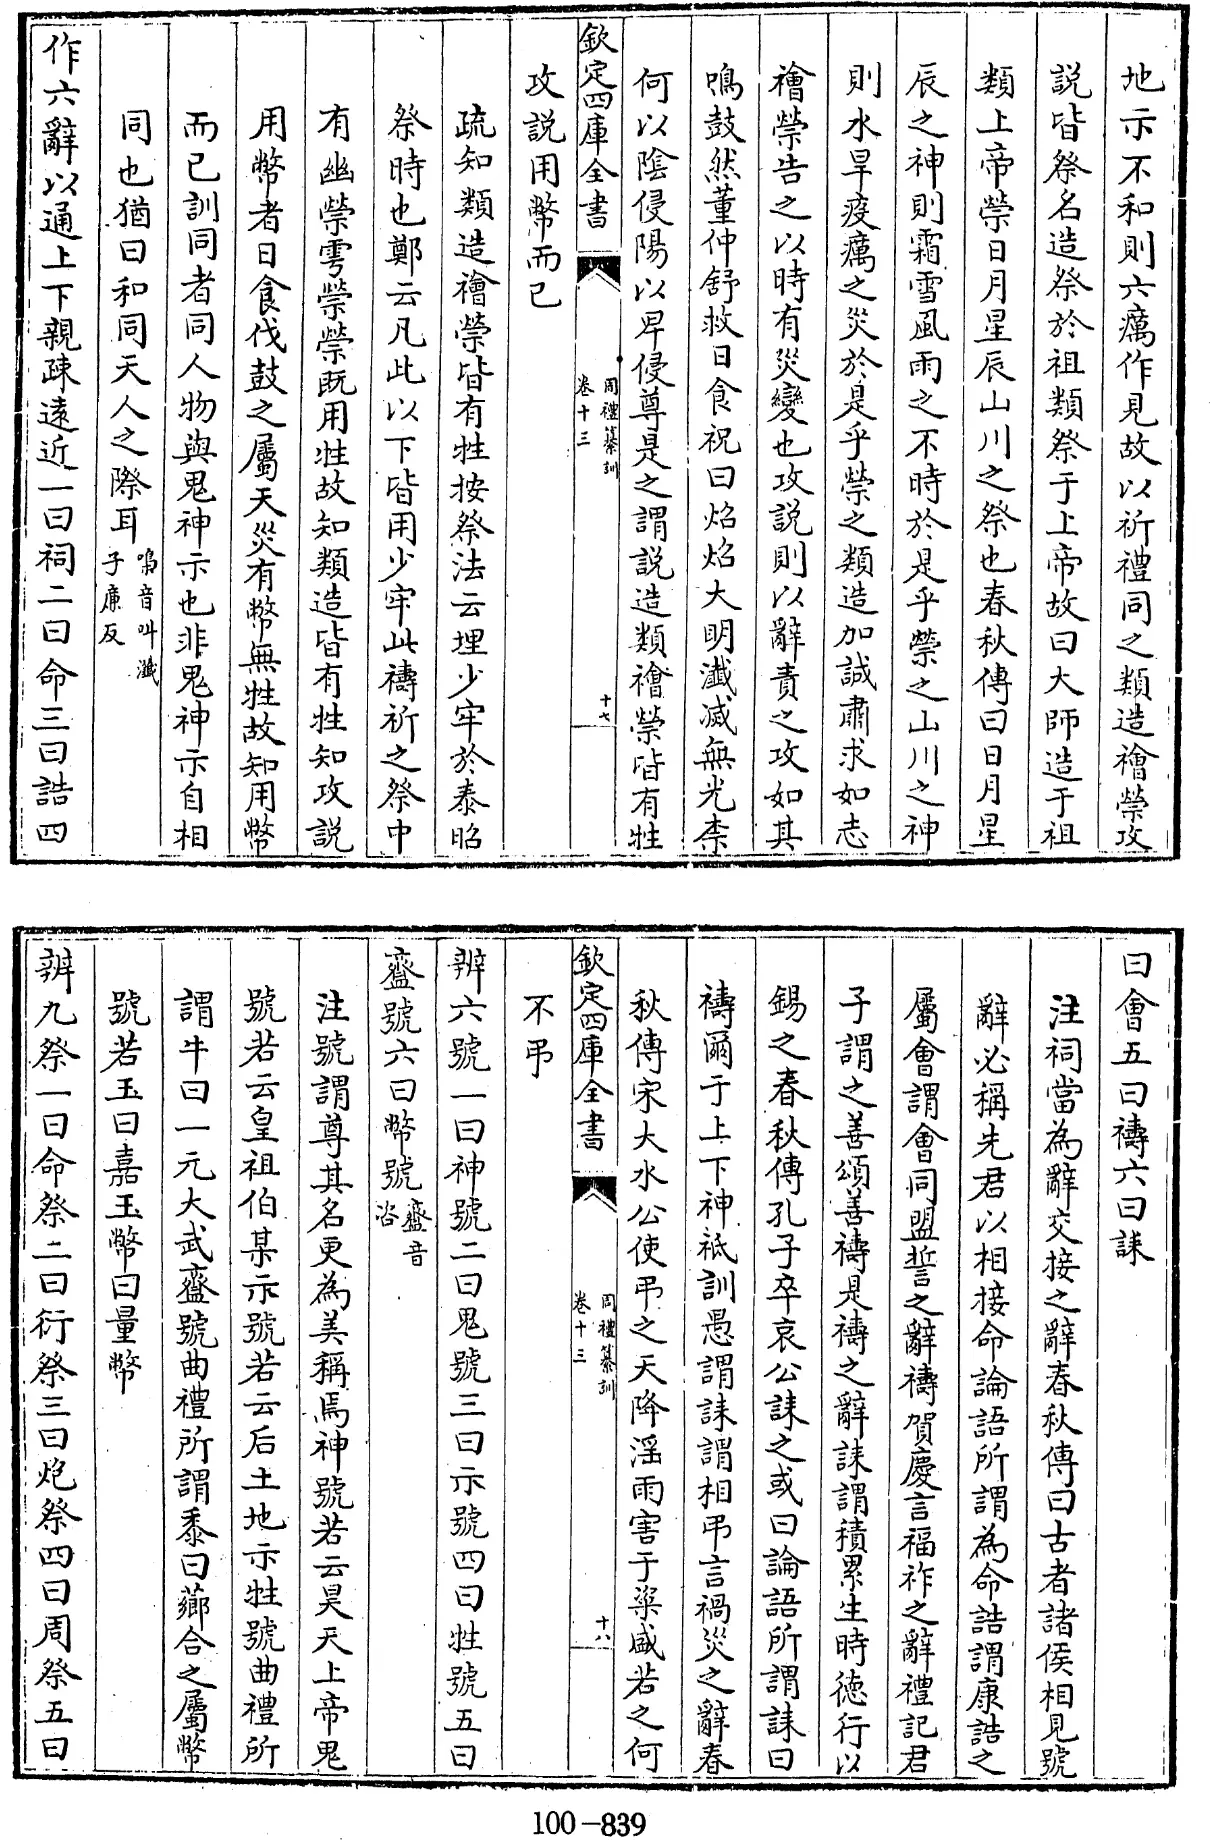 地示不和則六癘作見故以祈禮同之類造禬禜攻
説皆祭名造祭於祖類祭于上帝故曰大師造于祖
類上帝禜日月星辰山川之祭也春秋傳曰日月星
辰之神則霜雪風雨之不時於是乎禜之山川之神
則水旱疫癘之災於是乎禜之類造加誠肅求如志
禬禜告之以時有災變也攻説則以辭責之攻如其
鳴鼓然董仲舒救日食祝曰炤炤大明瀸滅無光柰
何以陰侵陽以卑侵尊是之謂説造類禬禜皆有牲
欽定四庫全書
周禮纂訓
卷十三
十七
攻説用幣而已
疏知類造禬禜皆有牲按祭法云埋少牢於泰昭
祭時也鄭云凡此以下皆用少牢此禱祈之祭中
有幽禜雩禜禜既用牲故知類造皆有牲知攻説
用幣者日食伐鼓之屬天災有幣無牲故知用幣
而已訓同者同人物與鬼神示也非鬼神示自相
同也猶曰和同天人之際耳
鳴音叫瀸
子廉反
作六辭以通上下親疎遠近一曰祠二曰命三曰誥四
曰會五曰禱六曰誄
注祠當為辭交接之辭春秋傳曰古者諸侯相見號
辭必稱先君以相接命論語所謂為命誥謂康誥之
屬會謂會同盟誓之辭禱賀慶言福祚之辭禮記君
子謂之善頌善禱是禱之辭誄謂積累生時徳行以
錫之春秋傳孔子卒哀公誄之或曰論語所謂誄曰
禱爾于上下神祇訓愚謂誄謂相弔言禍災之辭春
秋傳宋大水公使弔之天降淫雨害于粢盛若之何
欽定四庫全書
周禮纂訓
卷十三
十八
不弔
辨六號一曰神號二曰鬼號三曰示號四曰牲號五曰
齍號六曰幣號
齍音
咨
注號謂尊其名更為美稱焉神號若云昊天上帝鬼
號若云皇祖伯某示號若云后土地示牲號曲禮所
謂牛曰一元大武齍號曲禮所謂黍曰薌合之屬幣
號若玉曰嘉玉幣曰量幣
辨九祭一曰命祭二曰衍祭三曰炮祭四曰周祭五曰
100-839